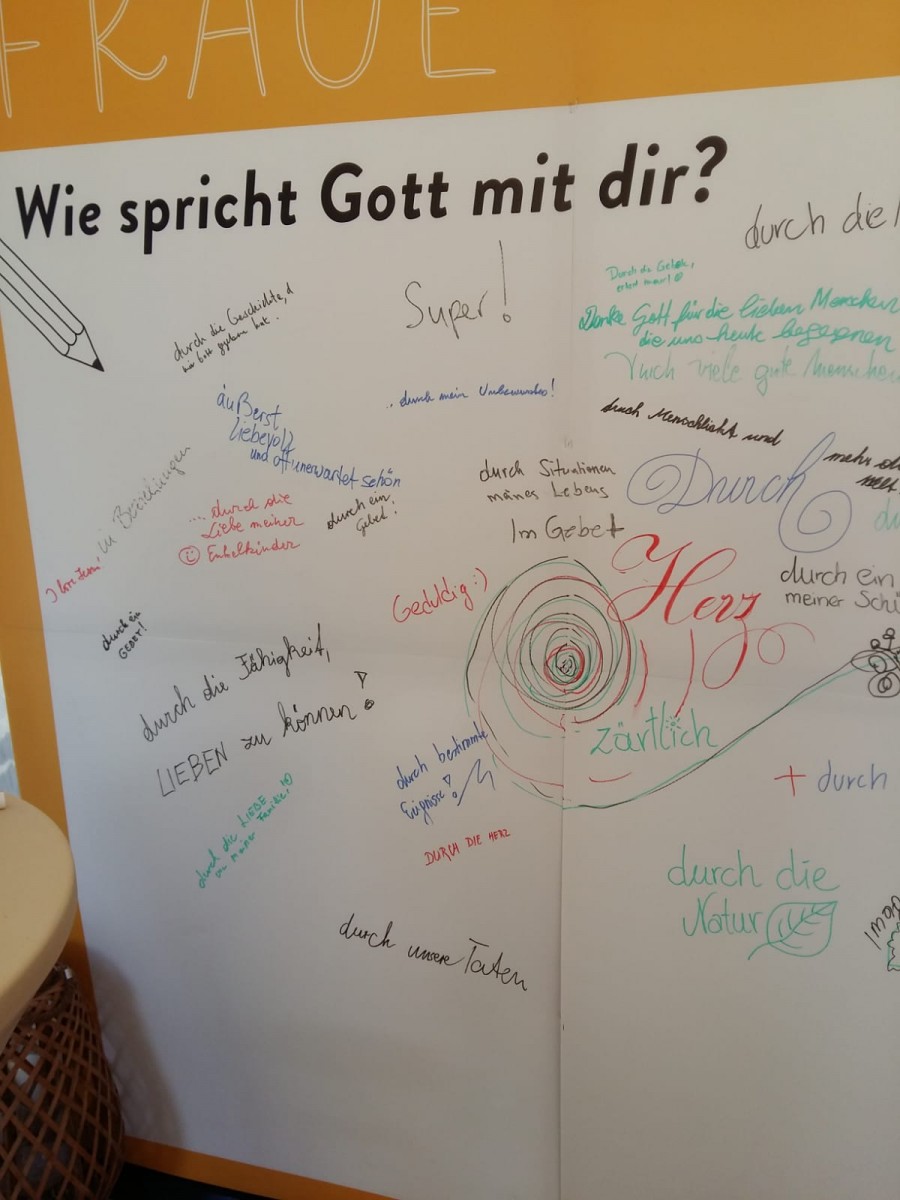 FRAGE
Wie spricht Gott mit dir?
durch die
Super!
durch die Geschichte, d
Danke Gott für die lieben Menschen
die uns heute begegnen
Durch viele gute Menschen
äußerst
liebevoll
und oft unerwartet schön
.. durch mein Unbewusstes!
durch Menschlichkeit und
mehr
durch Situationen
meines Lebens
Durch
in Beziehungen
... durch die
Liebe meiner
Enkelkinder
durch ein
Gebet!
Im Gebet
Herz
durch ein
meiner
Geduldig :)
durch ein
GEBET!
durch die Fähigkeit,
LIEBEN zu können!
zärtlich
durch bestimmte
+ durch
durch die LIEBE
meiner Familie!
DURCH DIE HERZ
durch die
Natur
durch unsere Taten